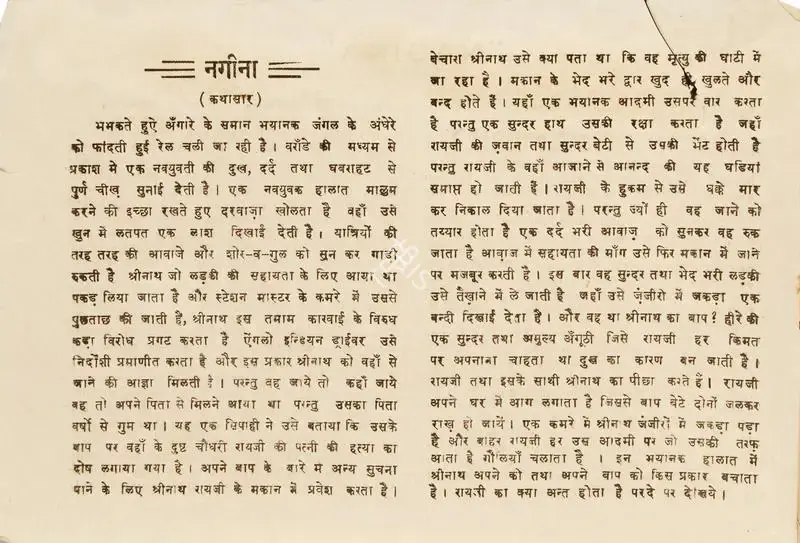 नगीना
(कथासार)
भभकते हुऐ अँगारे के समान भयानक जंगल के अंधेरे
को फांदती हुई रेल चली जा रही है। बराँडे की मध्यम से
प्रकाश मे एक नवयुवती की दुख, दर्द तथा घबराहट से
पुर्ण चीख़ सुनाई देती है। एक नवयुवक हालात मालुम
करने की इच्छा रखते हुए दरवाज़ा खोलता है वहाँ उसे
खुन में लतपत एक लाश दिखाई देती है। यात्रियों की
तरह तरह की आवाजे और शोर-व-गुल को सुन कर गाडी
रुकती है श्रीनाथ जो लड़की की सहायता के लिए आया था
पकड़ लिया जाता है और स्टेशन मास्टर के कमरे में उससे
पुछताछ की जाती हैं, श्रीनाथ इस तमाम कारवाई के विरुध
कड़ा विरोध प्रगट करता है ऐंगलो इन्डियन ड्राईवर उसे
निर्दोशी प्रमाणीत करता है और इस प्रकार श्रीनाथ को वहाँ से
जाने की आज्ञा मिलती है। परन्तु वह जाये तो कहाँ जाये
वह तो अपने पिता से मिलने आया था परन्तु उसका पिता
वर्षो से गुम था। यह एक सिपाही ने उसे बताया कि उसके
बाप पर वहाँ के दुष्ट चौधरी रायजी की पत्नी की हत्या का
दोष लगाया गया है। अपने बाप के बारे मे अन्य सुचना
पाने के लिए श्रीनाथ रायजी के मकान में प्रवेश करता है।
बेचारा श्रीनाथ उसे क्या पता था कि वह मृत्यु की घाटी में
जा रहा है। मकान के भेद भरे द्वार खुद ही खुलते और
बन्द होते हैं। यहाँ एक भयानक आदमी उसपर वार करता
है परन्तु एक सुन्दर हाथ उसकी रक्षा करता है जहाँ
रायजी की ज़वान तथा सुन्दर बेटी से उसकी भेंट होती है
परन्तु रायजी के वहाँ आजाने से आनन्द की यह घडियां
समाप्त हो जाती हैं। रायजी के हुकम से उसे धक्के मार
कर निकाल दिया जाता है। परन्तु ज्यों ही वह जाने को
तय्यार होता है एक दर्द भरी आवाज़ को सुनकर वह रुक
जाता है आवाज़ में सहायता की माँग उसे फिर मकान में जाने
पर मजबूर करती है। इस बार वह सुन्दर तथा भेद भरी लड़की
उसे तैख़ाने में ले जाती है जहाँ उसे जंजीरो में जकड़ा एक
बन्दी दिखाई देता है। और वह था श्रीनाथ का बाप? हीरे की
एक सुन्दर तथा अमुल्य अँगूठी जिसे रायजी हर किमत
पर अपनाना चाहता था दुख का कारण बन जाती है।
रायजी तथा इसके साथी श्रीनाथ का पीछा करते हैं। रायजी
अपने घर में आग लगाता है जिससे बाप बेटे दोनों जलकर
राख हो जायें। एक कमरे में श्रीनाथ जंजीरों में जकड़ा पड़ा
है और बाहर रायजी हर उस आदमी पर जो उसकी तरफ़
आता है गौलियाँ चलाता है। इन भयानक हालात में
श्रीनाथ अपने को तथा अपने बाप को किस प्रकार बचाता
है। रायजी का क्या अन्त होता है परदे पर देखिये।